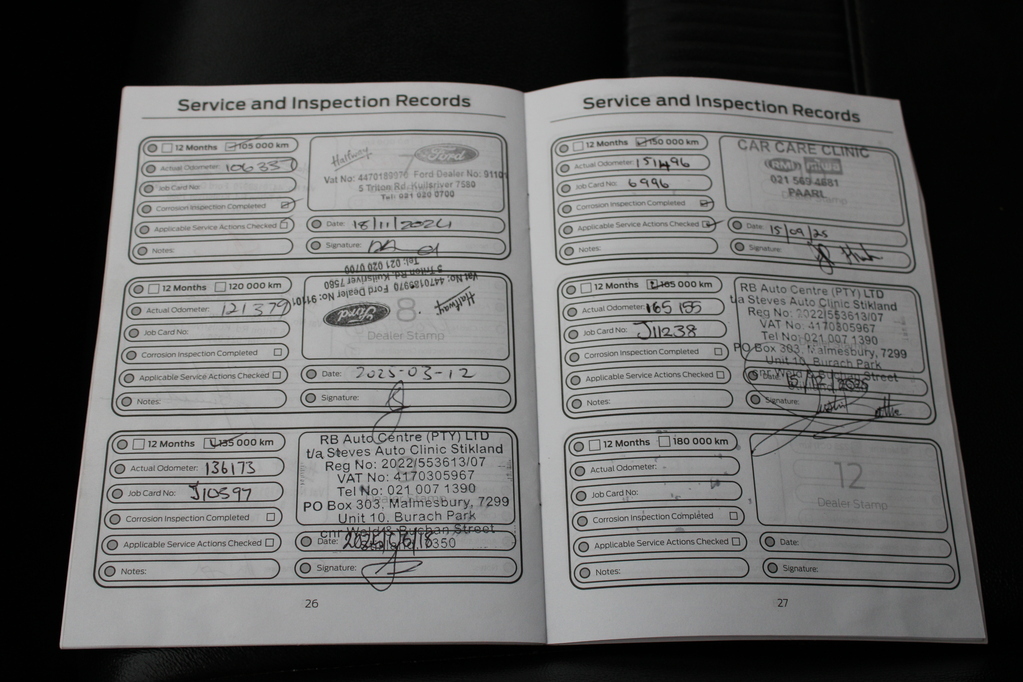 Service and Inspection Records
12 Months 105 000 km
Actual Odometer: 106337
Job Card No:
Corrosion Inspection Completed
Applicable Service Actions Checked
Notes:
Halfway Ford
Vat No: 4470189970 Ford Dealer No: 91101
5 Triton Rd, Kuilsriver 7580
Tel: 021 020 0700
Date: 18/11/2024
Signature:
12 Months 120 000 km
Actual Odometer: 121379
Job Card No:
Corrosion Inspection Completed
Applicable Service Actions Checked
Notes:
Tel: 021 020 0700
5 Triton Rd, Kuilsriver 7580
Vat No: 4470189970 Ford Dealer No: 91101
Halfway Ford
8
Dealer Stamp
Date: 2025-03-12
Signature:
12 Months 135 000 km
Actual Odometer: 136173
Job Card No: J10597
Corrosion Inspection Completed
Applicable Service Actions Checked
Notes:
RB Auto Centre (PTY) LTD
t/a Steves Auto Clinic Stikland
Reg No: 2022/553613/07
VAT No: 4170305967
Tel No: 021 007 1390
PO Box 303, Malmesbury, 7299
Unit 10, Burach Park
cnr Weld & Buchan Street
Date:
Signature:
26
Service and Inspection Records
12 Months 150 000 km
Actual Odometer: 151496
Job Card No: 6996
Corrosion Inspection Completed
Applicable Service Actions Checked
Notes:
CAR CARE CLINIC
RMI miwa
021 569 4681
PAARL
Date: 15/09/25
Signature:
12 Months 165 000 km
Actual Odometer: 165 155
Job Card No: J11238
Corrosion Inspection Completed
Applicable Service Actions Checked
Notes:
RB Auto Centre (PTY) LTD
t/a Steves Auto Clinic Stikland
Reg No: 2022/553613/07
VAT No: 4170305967
Tel No: 021 007 1390
PO Box 303, Malmesbury, 7299
Unit 10, Burach Park
Street
Date: 15/12/2025
Signature:
12 Months 180 000 km
Actual Odometer:
Job Card No:
Corrosion Inspection Completed
Applicable Service Actions Checked
Notes:
12
Dealer Stamp
Date:
Signature:
27